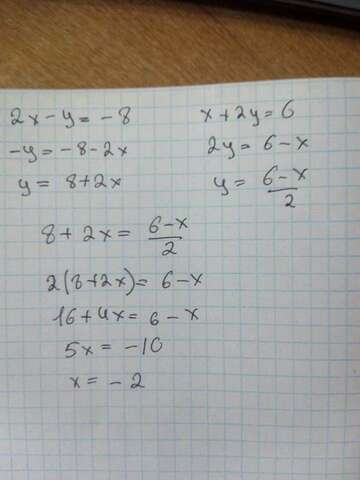 2x - y = -8    x + 2y = 6
-y = -8 - 2x    2y = 6 - x
y = 8 + 2x    y = (6 - x)/2
8 + 2x = (6 - x)/2
2(8 + 2x) = 6 - x
16 + 4x = 6 - x
5x = -10
x = -2